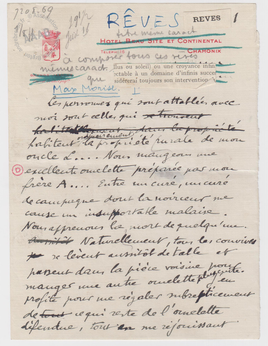 7208.69
RÊVES
RÊVES 1
titre même caract.
HOTEL BEAU SITE ET CONTINENTAL
CHAMONIX
à composer tous ces rêves
même caract.
que
Max Morise
Sur ce nouvel
table à un domaine d'intérêt
sidérerai toujours son intervention
Les personnes qui sont attablées avec
moi sont celles qui
habitent la propriété rurale de mon
oncle L..... Nous mangeons une
excellente omelette préparée par mon
frère A.... Entre un curé, un curé
de campagne dont la noirceur me
cause un insupportable malaise.
Nous apprenons la mort de quelqu'un.
Naturellement, tous les convives
se lèvent aussitôt de table et
passent dans la pièce voisine pour
manger une autre omelette. J'en
profite pour me régaler subrepticement
de ce qui reste de l'omelette
défendue, tout en me réjouissant